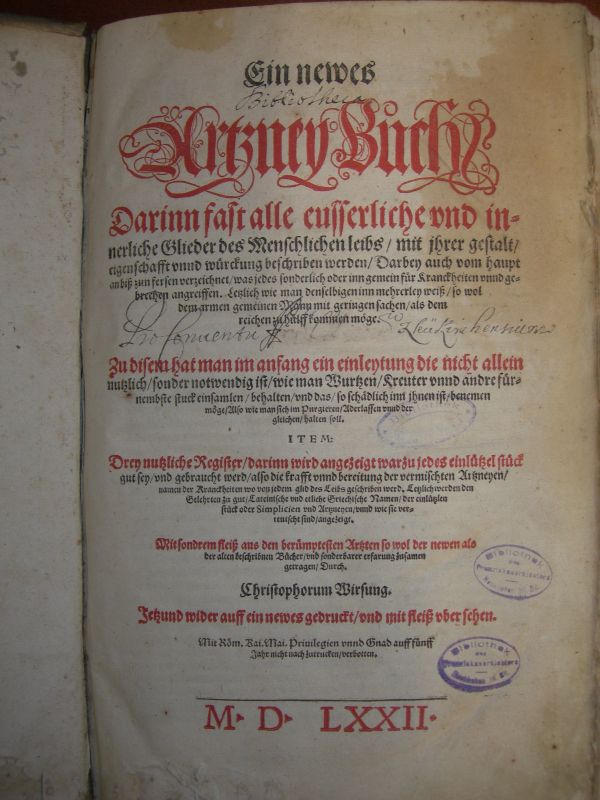 Ein newes
Bibliotheca
Artzney Buch/
Darinn fast alle eusserliche vnd in-
nerliche Glieder des Menschlichen leibs / mit jhrer gestalt /
eigenschafft vnnd würckung beschriben werden / Darbey auch vom haupt
an biß zun fersen verzeichnet / was jedes sonderlich oder inn gemein für Kranckheiten vnnd ge-
brechen angreiffen. Letzlich wie man denselbigen inn mehrerley weiß / so wol
dem armen gemeinen Mann mit geringen sachen / als dem
reichen zu hülff kommen möge.
Pro Conventu
Zu disem hat man im anfang ein einleytung die nicht allein
nutzlich / sonder notwendig ist / wie man Wurtzen / Kreuter vnnd andre für-
nembste stuck einsamlen / behalten / vnd das / so schädlich inn jhnen ist / benemen
möge / Also wie man sich im Purgieren / Aderlassen vnnd der
gleichen / halten soll.
ITEM:
Drey nutzliche Register / darinn wird angezeigt warzu jedes einlützel stück
gut sey / vnd gebraucht werd / also die krafft vnnd bereitung der vermischten Artzneyen /
namen der Kranckheiten wo von jedem glid des Leibs geschriben werd. Letzlich werden den
Gelehrten zu gut / Lateinische vnd etliche Griechische Namen / der einlützlen
stück oder Simplicien vnd Artzneyen / vnnd wie sie ver-
teutscht sind / angezeigt.
Mit sondrem fleiß aus den berümptesten Artzten so wol der newen als
der alten beschribnen Bücher / vnd sonderbarer erfarung zusamen
getragen / Durch.
Christophorum Wirsung.
Jetzund wider auff ein newes gedruckt / vnd mit fleiß vbersehen.
Mit Röm. Kai. Mai. Priuilegien vnnd Gnad auff fünff
Jahr nicht nach zutrucken / verbotten.
Bibliothek
des
Franziskanerklosters
Bibliothek
des
Franziskanerklosters
M· D· LXXII·